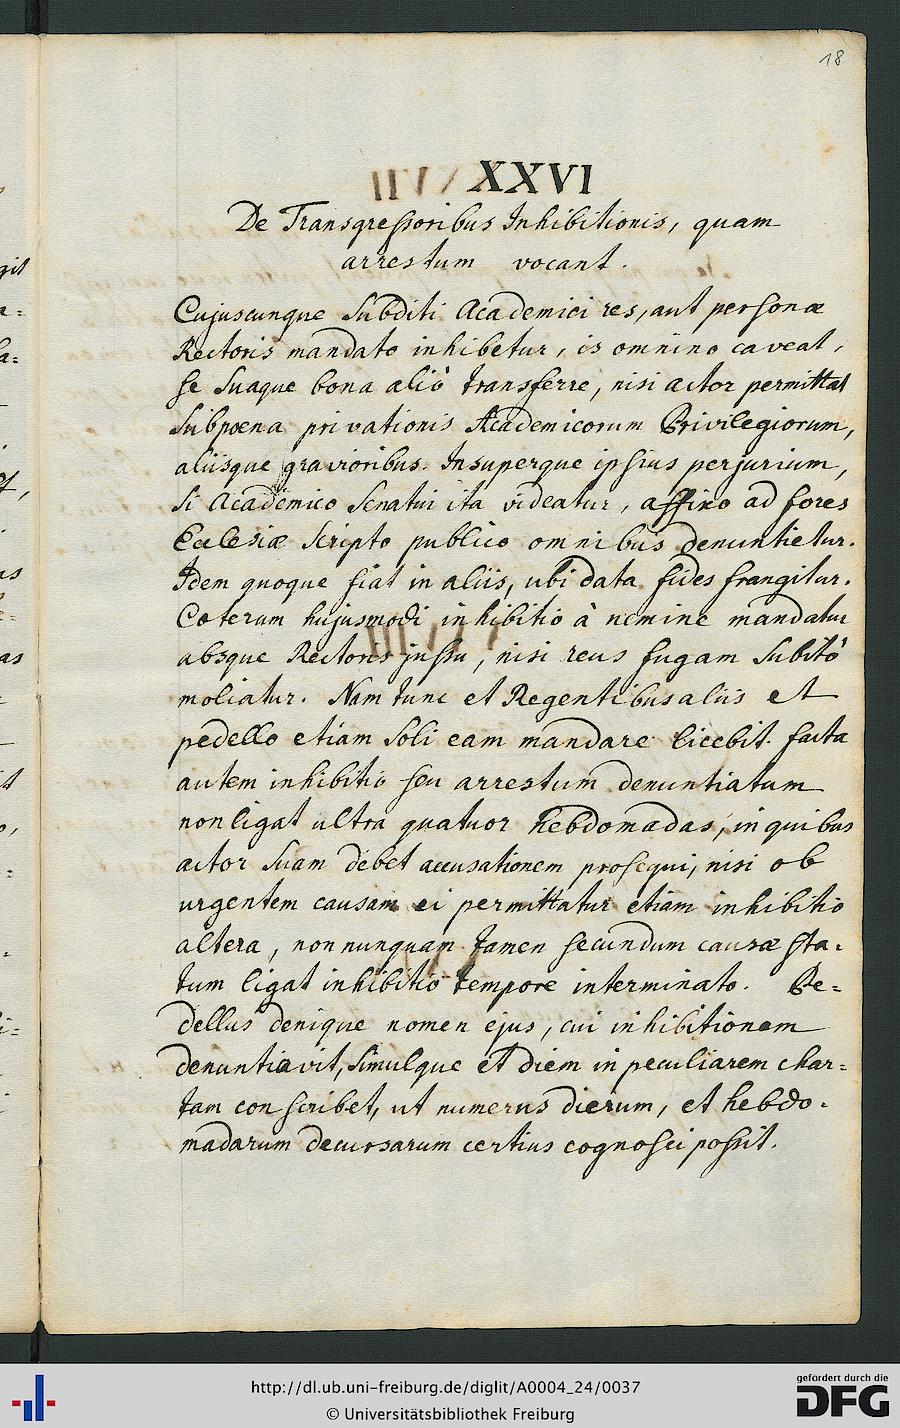 18
XXVI
De Transgressoribus Inhibitionis, quam
arrestum vocant.
Cujuscunque Subditi Academici res, aut personæ
Rectoris mandato inhibetur, is omnino caveat,
se suaque bona aliò transferre, nisi actor permittat
sub pœna privationis Academicorum Privilegiorum,
aliisque gravioribus. Insuperque ipsius perjurium,
si Academico Senatui ita videatur, affixo ad fores
Ecclesiæ scripto publico omnibus denuntietur.
Idem quoque fiat in aliis, ubi data fides frangitur.
Cæterum hujusmodi inhibitio à nemine mandatur
absque Rectoris jussu, nisi reus fugam subitò
moliatur. Nam tunc et Regentibus aliis et
pedello etiam soli eam mandare licebit. facta
autem inhibitio seu arrestum denuntiatum
non ligat ultra quatuor hebdomadas, in quibus
actor suam debet accusationem prosequi, nisi ob
urgentem causam ei permittatur etiam inhibitio
altera, non nunquam tamen secundum causæ sta-
tum ligat inhibitio tempore interminato. Pe=
dellus denique nomen ejus, cui inhibitionem
denuntiavit, simulque et diem in peculiarem char=
tam conscribet, ut numerus dierum, et hebdo-
madarum decursarum certius cognosci possit.
http://dl.ub.uni-freiburg.de/diglit/A0004_24/0037
© Universitätsbibliothek Freiburg
gefördert durch die
DFG